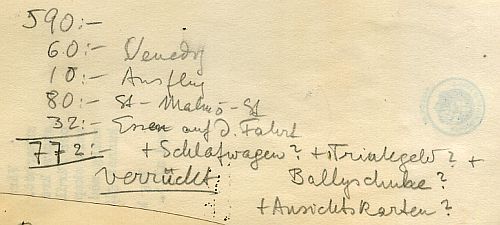 590:-
60:- Venedig
10:- Ausflug
80:- St-Malmö-St
32:- Essen auf d. Fahrt
772:- + Schlafwagen? + Trinkgeld? +
verrückt Ballyschuhe?
+ Ansichtskarten?